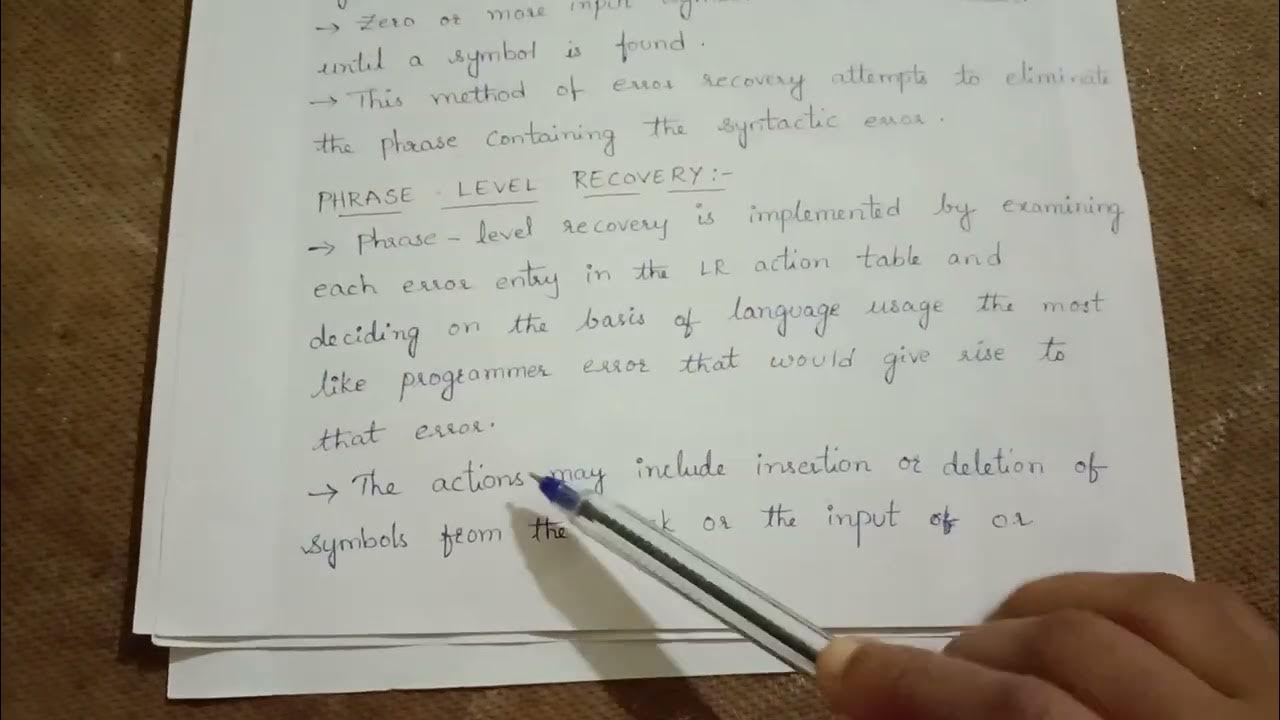 → Zero or more input
until a symbol is found.
→ This method of error recovery attempts to eliminate
the phrase containing the syntactic error.
PHRASE LEVEL RECOVERY:-
→ Phrase-level recovery is implemented by examining
each error entry in the LR action table and
deciding on the basis of language usage the most
like programmer error that would give rise to
that error.
→ The actions may include insertion or deletion of
symbols from the or the input of or